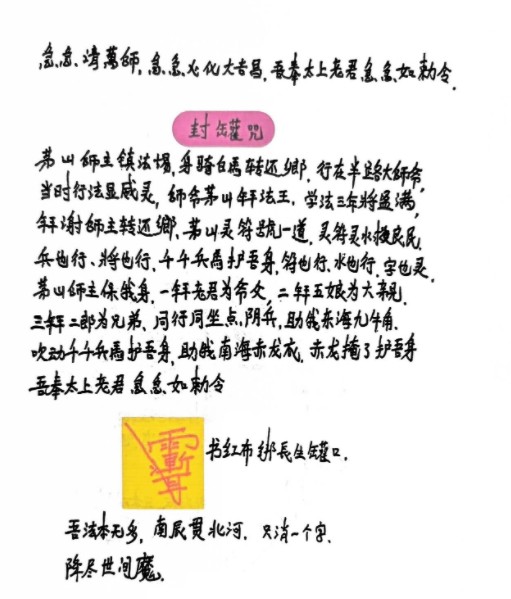 急急请万师，急急火化大吉昌，吾奉太上老君急急如勅令．
封罐咒
茅山师主镇法場，身骑白馬转还鄉．行在半路大师爷，
当时行法显威灵，师爷茅山拜法王，学法三年將盈满，
拜谢师主转还鄉、茅山灵符號一道，灵符灵水救良民，
兵也行、將也行，千千兵馬护吾身，符也行．水也行，字也灵．
茅山师主保俄身，一拜老君为爷父，二拜五娘为大親，
三拜二郎为兄弟、同行同坐点阴兵，助俄东海九牛角．
吹动千千兵馬护吾身，助俄南海赤龙衣．赤龙掩了护吾身
吾奉太上老君急急如勅令
书红布绑長生罐口．
吾法本无多，南辰贯北河．只消一个字．
降尽世间魔．